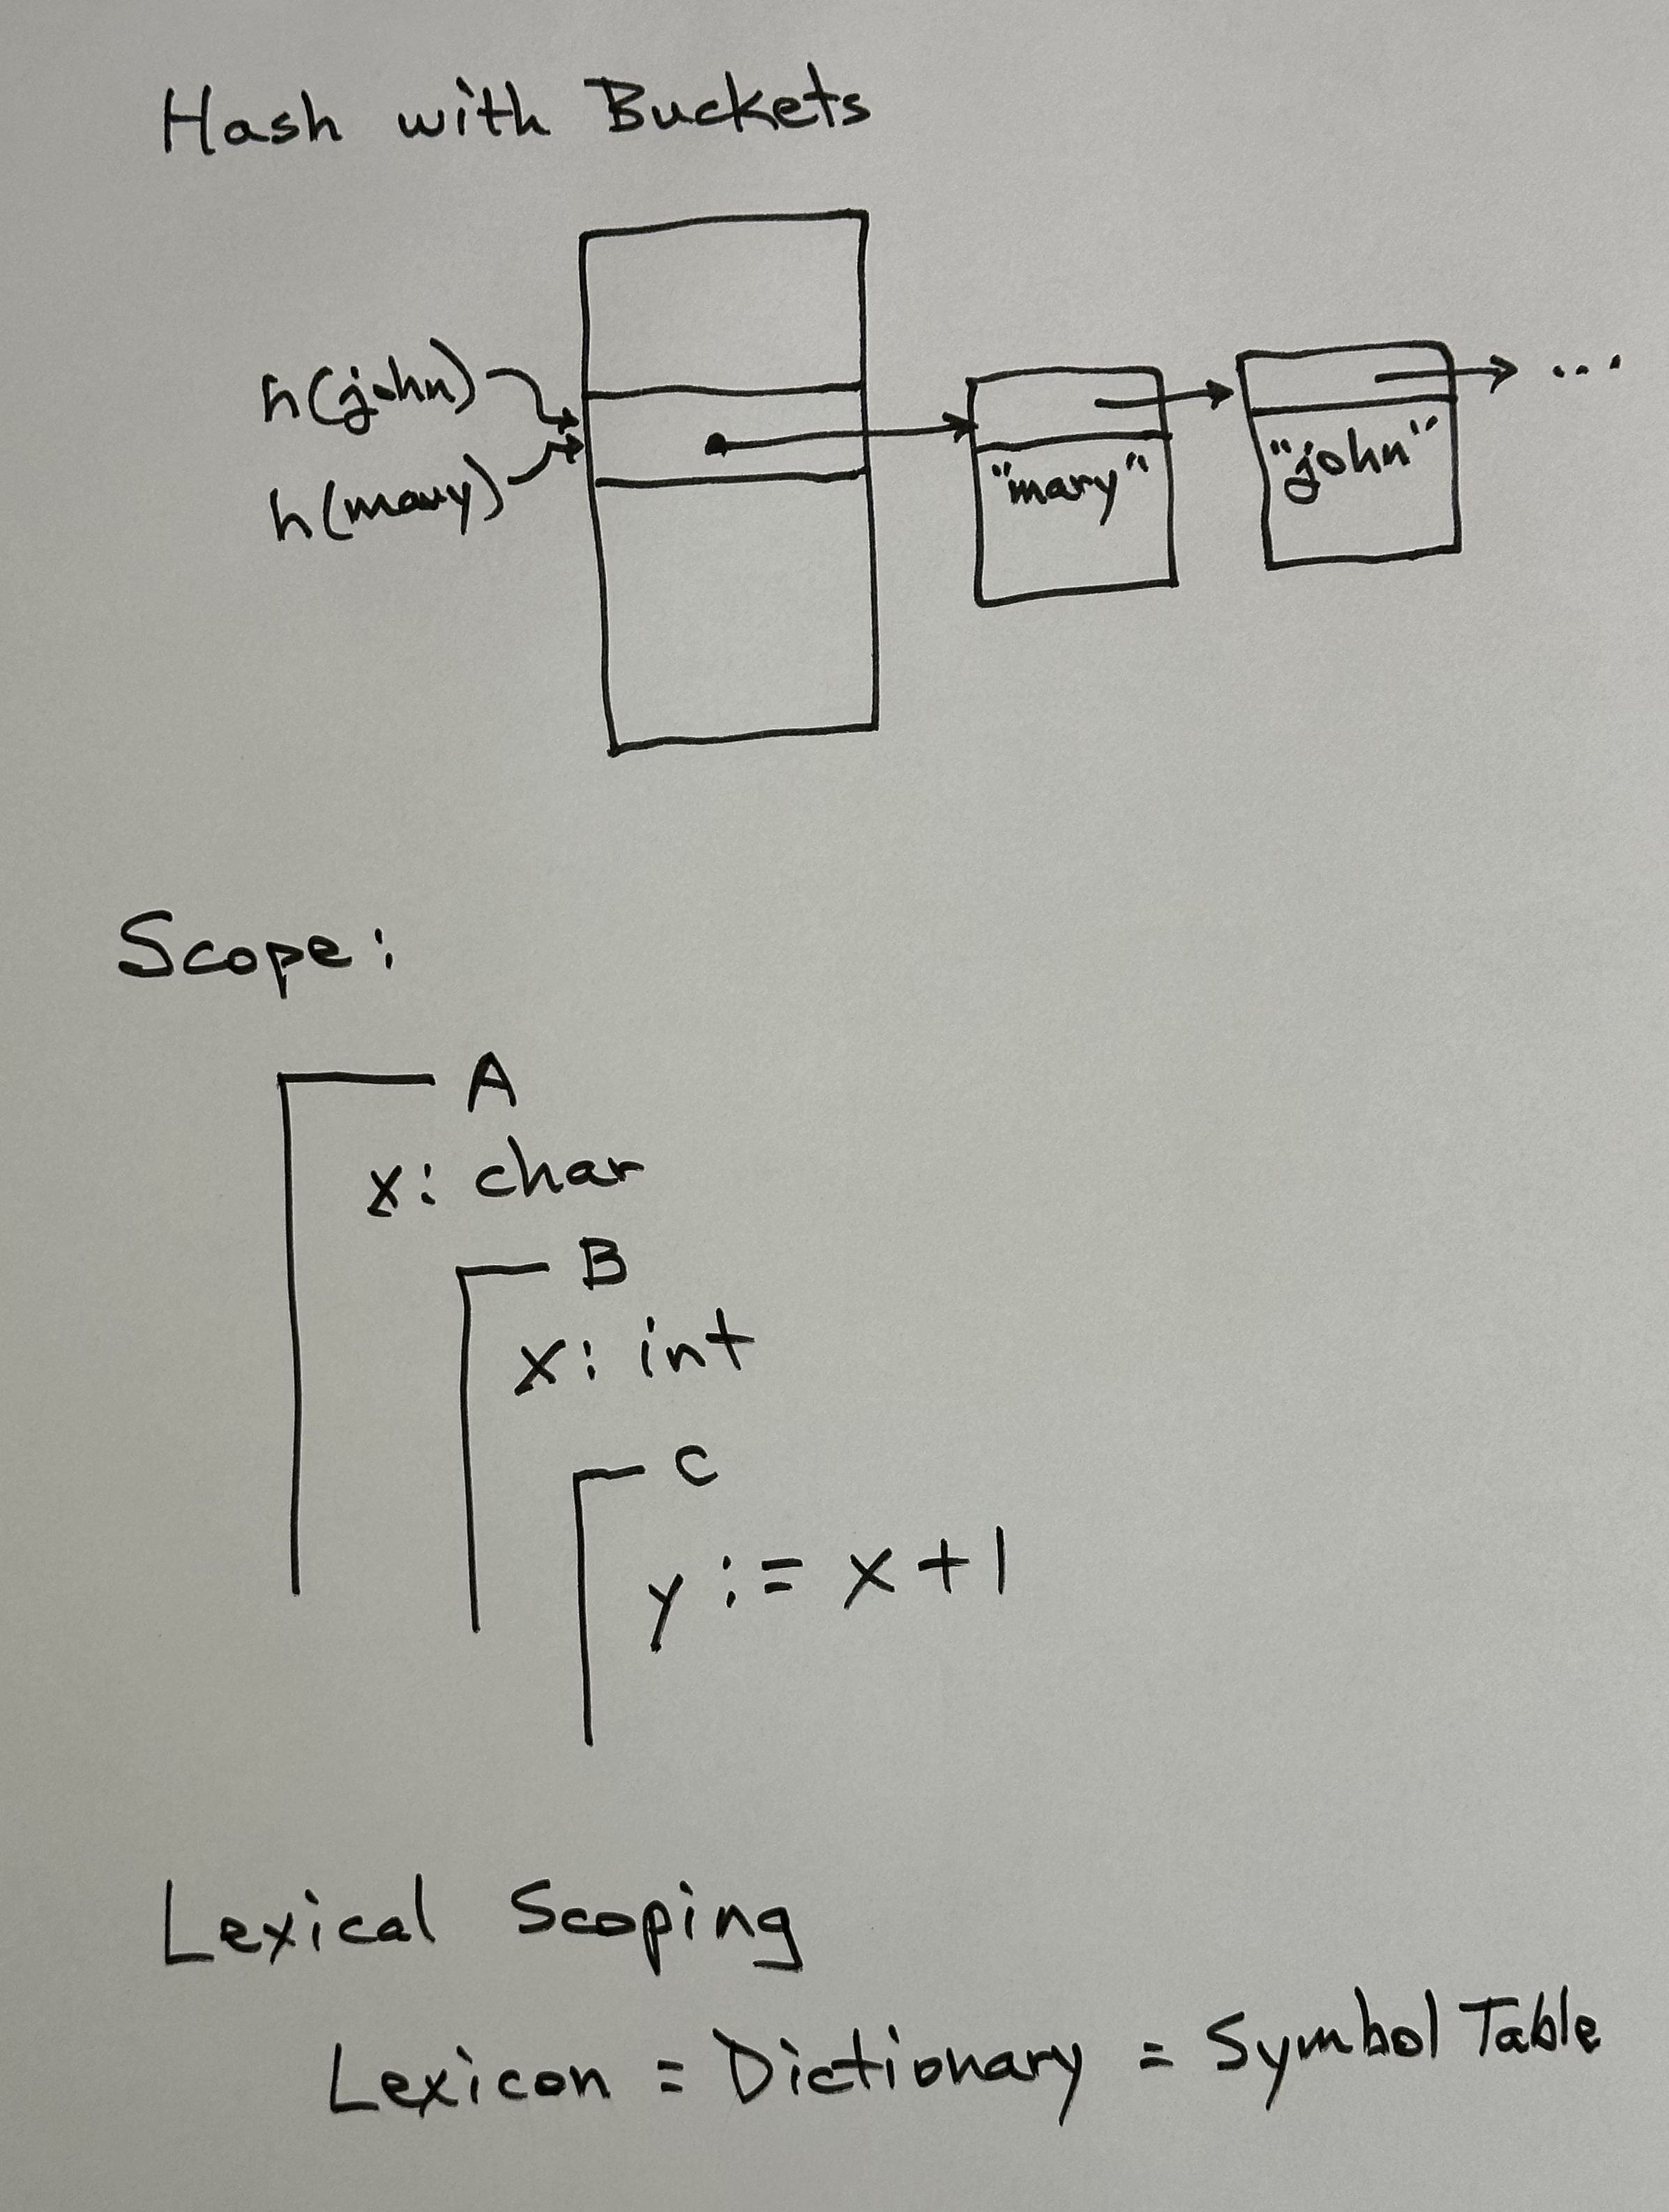 Hash with Buckets
h(john)
h(mary)
"mary"
"john"
...
Scope:
A
x: char
B
x: int
C
y := x + 1
Lexical Scoping
Lexicon = Dictionary = Symbol Table